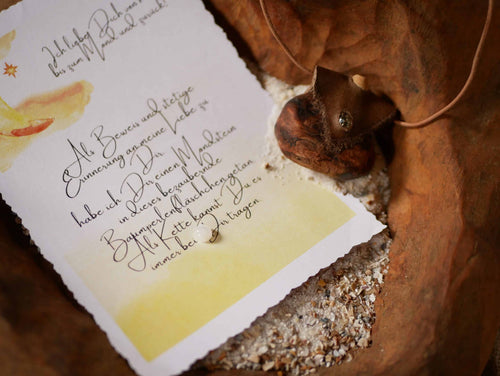 Ich liebe Dich
bis zum Mond und zurück!
Als Beweis und stetige
Erinnerung an meine Liebe zu
Dir
habe ich Dir einen Mondstein
in dieses bezaubernde
Baumperlenfläschchen getan
Als Kette kannst Du es
immer bei Dir tragen